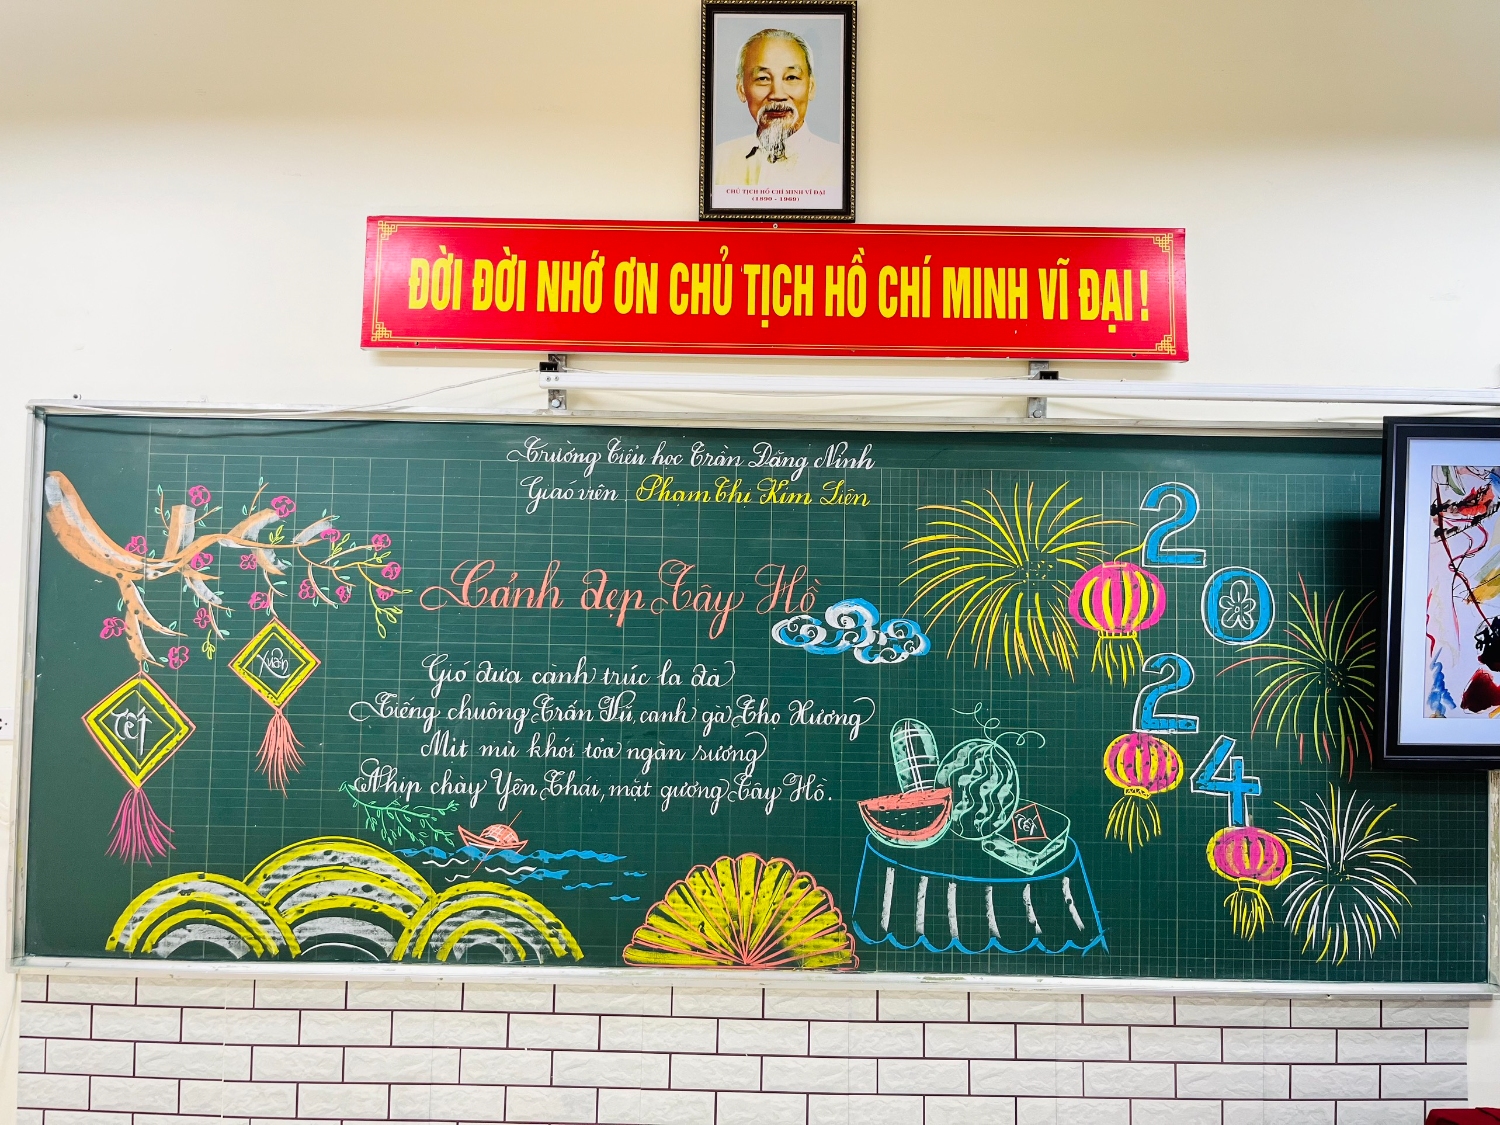 CHỦ TỊCH HỒ CHÍ MINH VĨ ĐẠI
(1890 - 1969)
ĐỜI ĐỜI NHỚ ƠN CHỦ TỊCH HỒ CHÍ MINH VĨ ĐẠI!
Trường Tiểu học Trần Đăng Ninh
Giáo viên Phạm Thị Kim Liên
Cảnh đẹp Tây Hồ
Gió đưa cành trúc la đà
Tiếng chuông Trấn Vũ, canh gà Thọ Xương
Mịt mù khói tỏa ngàn sương
Nhịp chày Yên Thái, mặt gương Tây Hồ.
Xuân
Tết
Tết
2
0
2
4